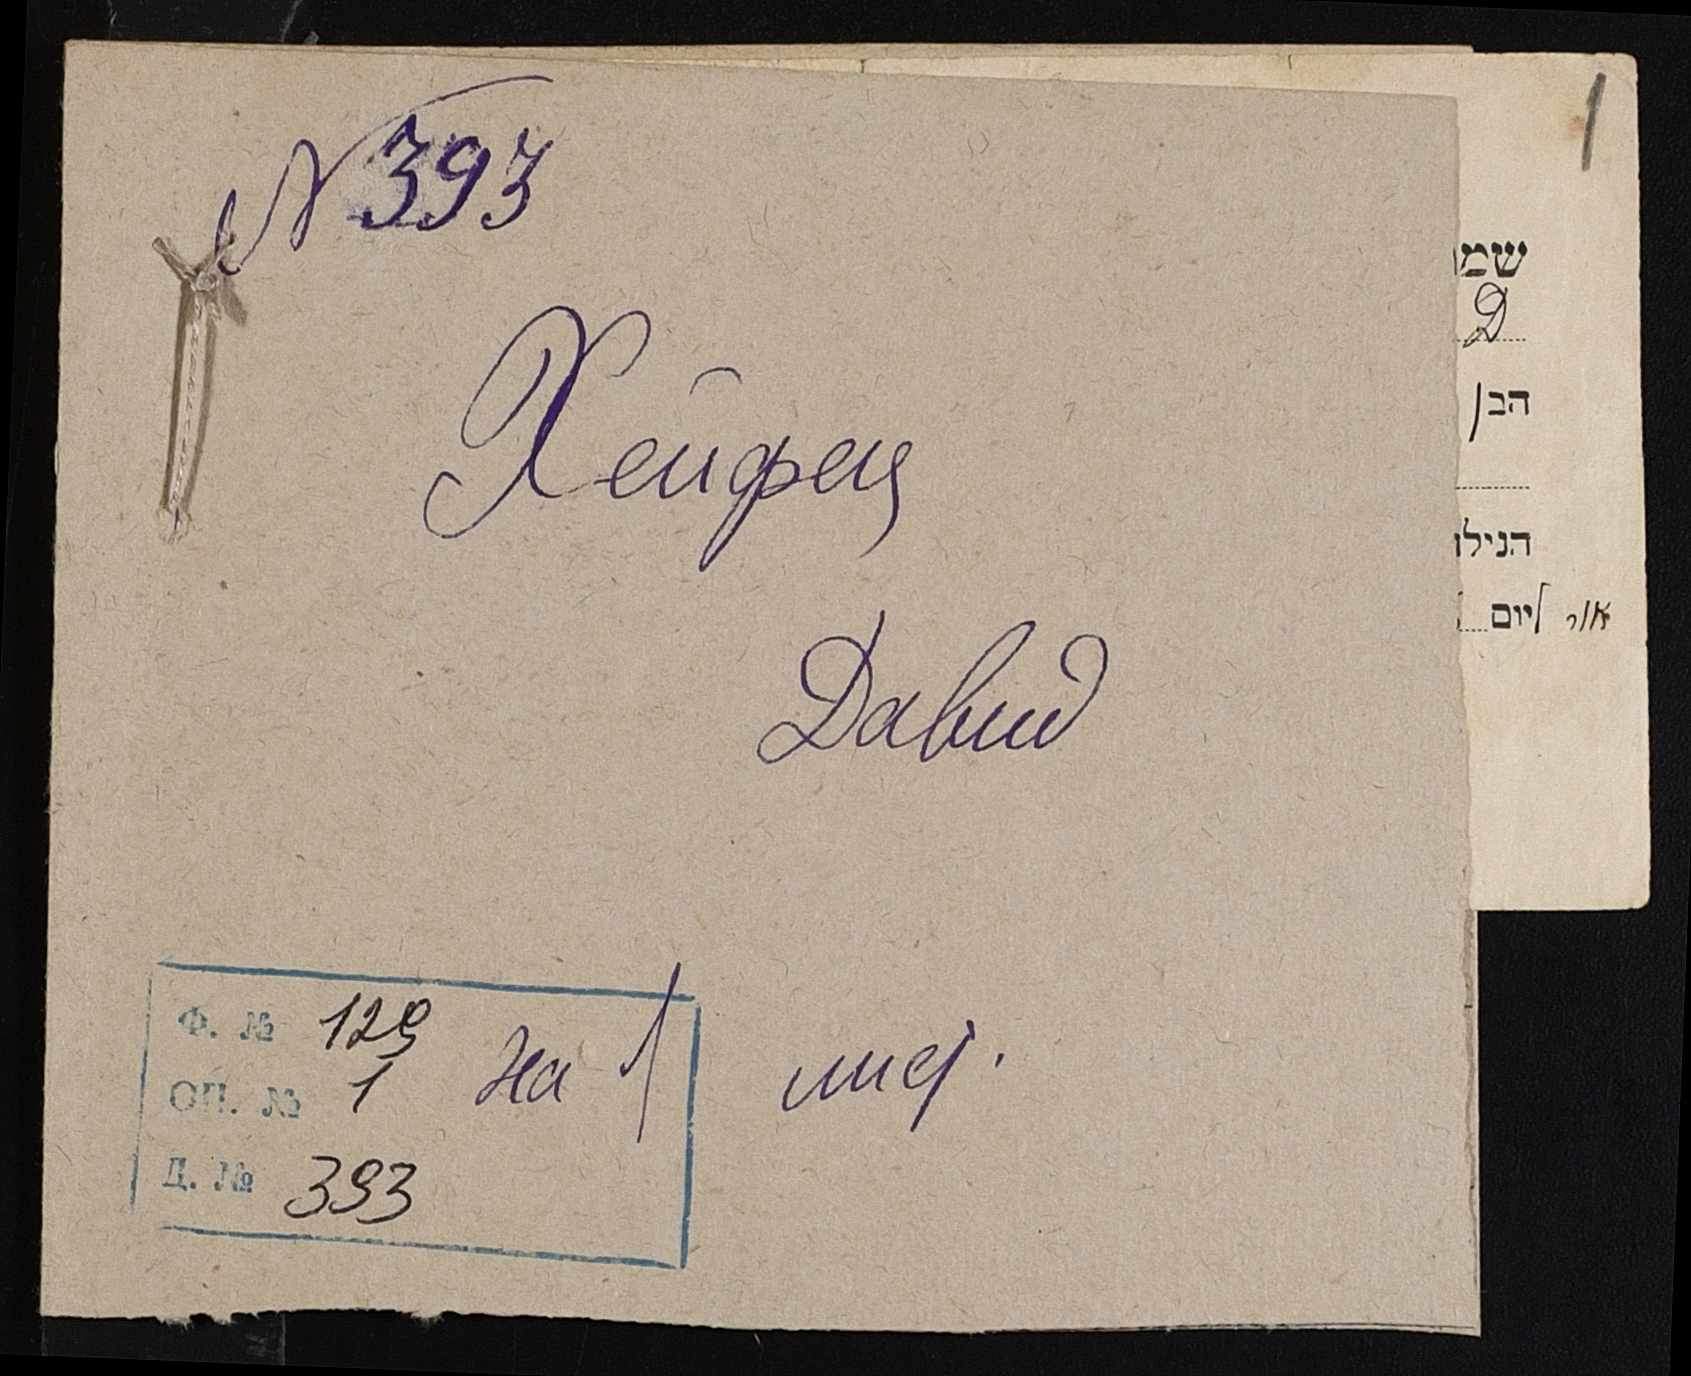 № 393
Хейфец
Давид
Ф. № 129
ОП. № 1
на 1 лист.
Д. № 393
1
שמ
Д
הבן
הנילו
אור ליום